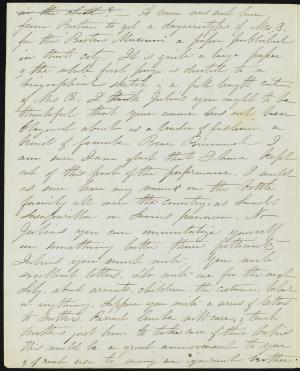 in the
A man was out here
from Boston to get a daguerreotype of Mrs. B.
for the Boston Museum a paper published
in that city. It is quite a large paper
& the whole first page is devoted to a
biographical sketch & a full length cut
of Mrs B. I think Julius you ought to be
thankful that your name has not been
about as a leader of fashion, a
kind of female Beau Brummel. I
am sure I am glad that I have kept
out of this part of the performance. I would
as soon have my name on the bottle
all over the country, as
No
Julius you can immortalize yourself
in something better than
Julius you must write. You write
excellent letters. Do write me for the
Lily, about children the costume,
or anything. Suppose you write a series of letters
to mothers.
mothers just how to take care of their babies
this would be a great amusement to you
& of great use to many an ignorant mother